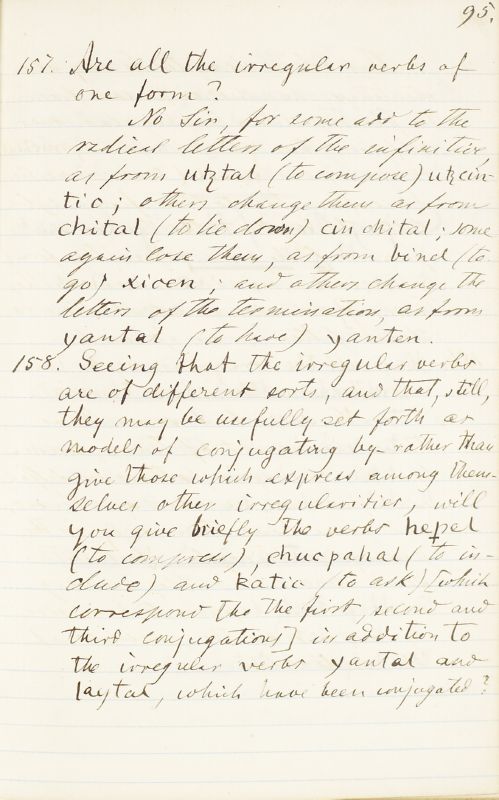 95.
157. Are all the irregular verbs of
one form?
No Sir, for some add to the
radical letters of the infinitive,
as from utztal (to compose) utzcin-
tic; others change them as from
chital (to lie down) cin chital; some
again lose them, as from binel (to
go) xicen; and others change the
letters of the termination, as from
yantal (to have) yanten.
158. Seeing that the irregular verbs
are of different sorts, and that, still,
they may be usefully set forth as
models of conjugating by - rather than
give those which express among them-
selves other irregularities, will
you give briefly the verbs hepel
(to compress), chucpahal (to in-
clude) and katic (to ask) [which
correspond [to the first, second and
third conjugations] in addition to
the irregular verbs yantal and
laytal, which have been conjugated?